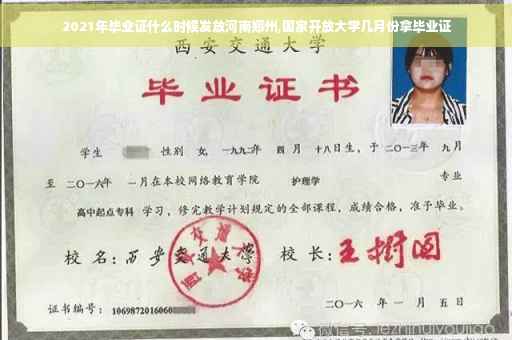 2021年毕业证什么时候发放河南郑州,国家开放大学几月份拿毕业证
西安交通大学
毕业证书
学生 性别 女, 一九九二年 四月 十八日生, 于 二〇一三年 九月
至 二〇一六年 一月在本校网络教育学院 护理学 专业
高中起点专科 学习, 修完教学计划规定的全部课程, 成绩合格, 准予毕业。
校名: 西安交通大学 校长: 王树国
西安交通大学
证书编号: 1069872016060
二〇一六年一月五日
微信号: jezhihuiyoujiao